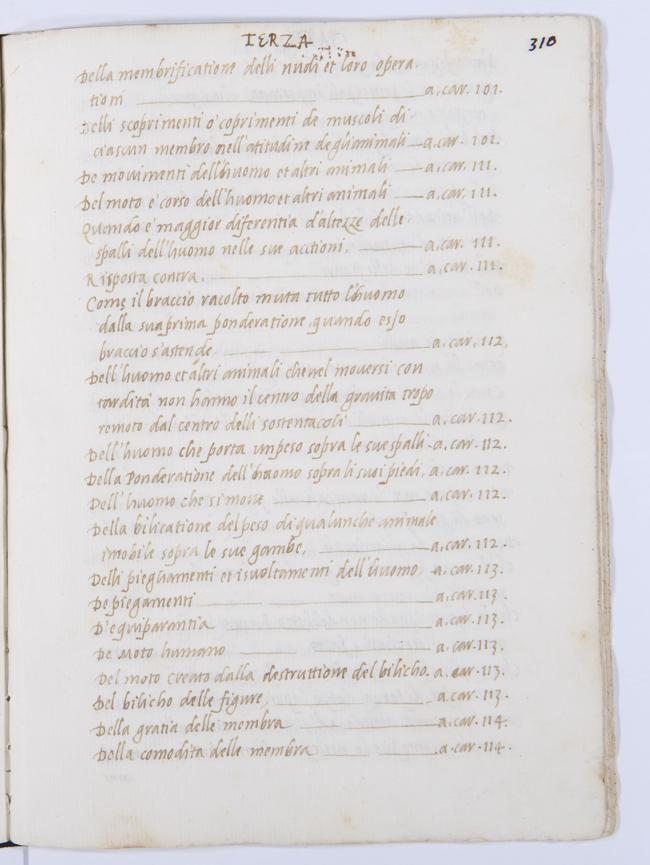 TERZA
310
Della membrificatione delli nudi et loro opera
tioni a. car. 101.
Delli scoprimenti o' coprimenti de muscoli di
ciascun membro nell'atitudine degli animali a. car. 101.
De movimenti dell'huomo et altri animali a. car. 111.
Del moto e' corso dell'huomo et altri animali a. car. 111.
Quando e' maggior diferentia d'altezze delle
spalli dell'huomo nelle sue acctioni, a. car. 111.
Risposta contra a. car. 111.
Come il braccio racolto muta tutto l'huomo
dalla sua prima ponderatione quando esso
braccio s'astende a. car. 112.
Dell'huomo et altri animali che nel moversi con
tardità non hanno il centro della gravita tropo
remoto dal centro delli sostentacoli a. car. 112.
Dell'huomo che porta un peso sopra le sue spalli. a. car. 112.
Della Ponderatione dell'huomo sopra li suoi piedi, a. car. 112.
Dell'huomo che si move a. car. 112.
Della bilicatione del peso di qualunche animale
imobile sopra le sue gambe, a. car. 112
Delli pieghamenti et isvoltamenti dell'huomo a. car. 113.
De piegamenti a. car. 113.
D'equiparantia a. car. 113.
De Moto humano a. car. 113.
Del moto creato dalla destruttione del bilicho. a. car. 113.
Del bilicho delle figure a. car. 113.
Della gratia delle membra a. car. 114.
Della comodita delle membra a. car. 114.